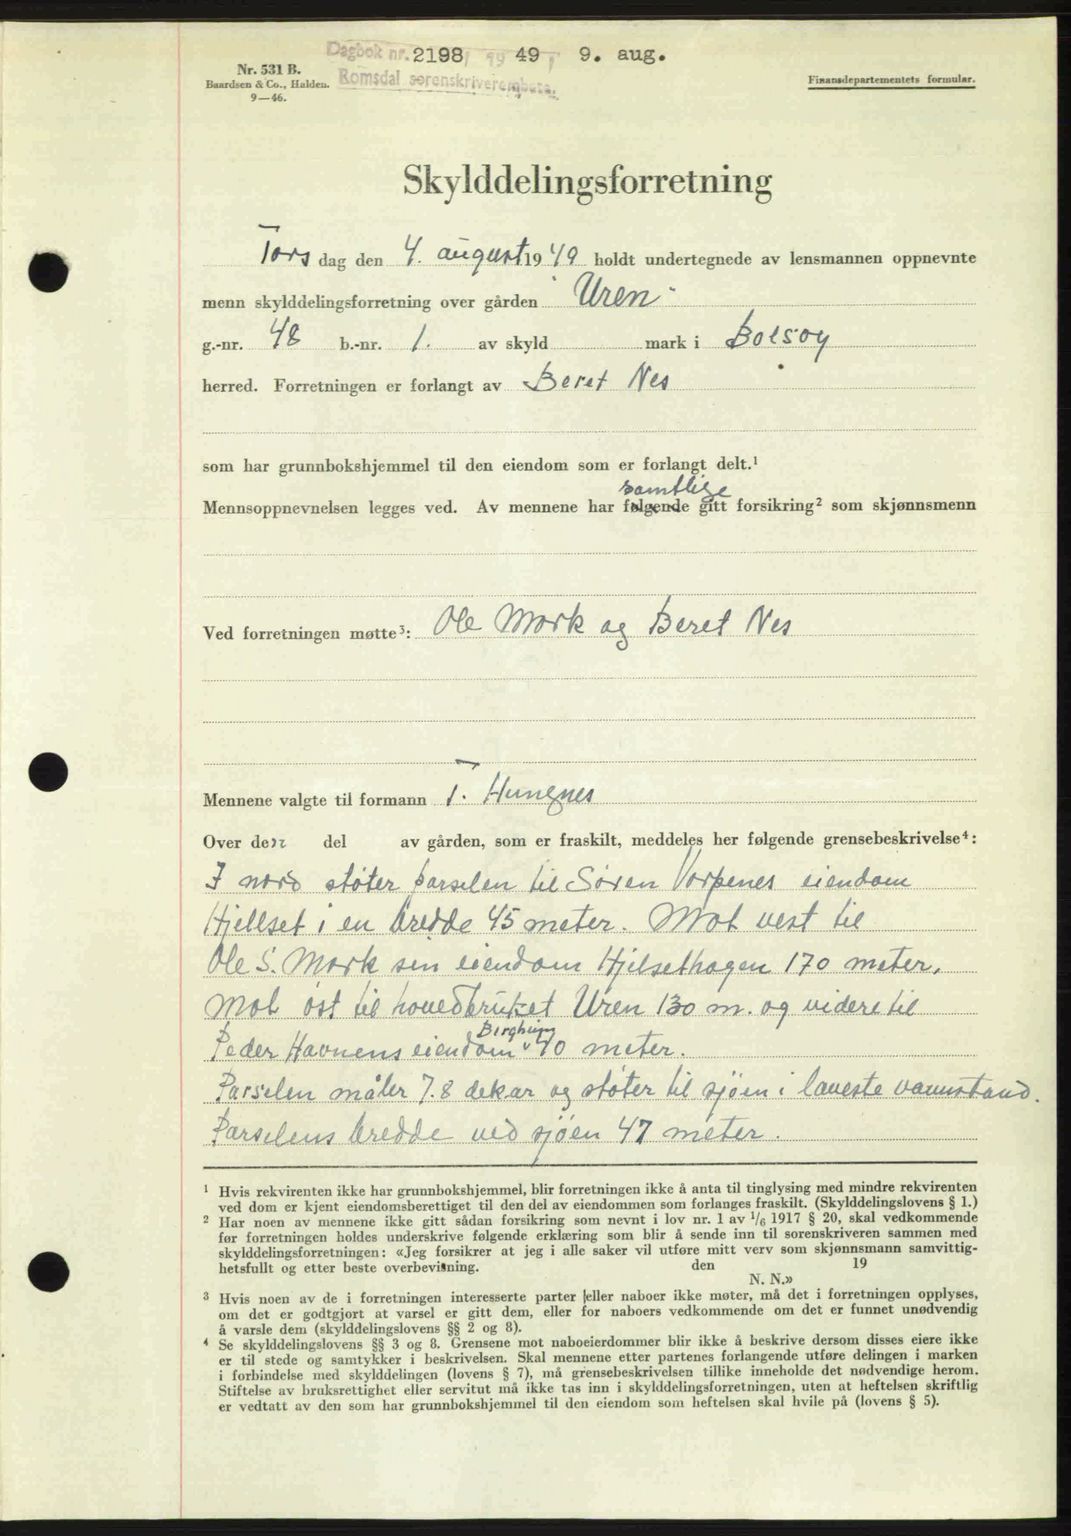 Dagbok nr. 2198 / 19 49 , 9. aug.
Romsdal sorenskriverembete.
Nr. 531 B.
Baardsen & Co., Halden.
9—46.
Finansdepartementets formular.
Skylddelingsforretning
Tors dag den 4. august 1949 holdt undertegnede av lensmannen oppnevnte
menn skylddelingsforretning over gården "Uren"
g.-nr. 48 b.-nr. 1. av skyld mark i Bolsøy
herred. Forretningen er forlangt av Beret Nes
som har grunnbokshjemmel til den eiendom som er forlangt delt.¹
samtlige
Mennsoppnevnelsen legges ved. Av mennene har følgende gitt forsikring² som skjønnsmenn
Ved forretningen møtte³: Ole Mork og Beret Nes
Mennene valgte til formann T. Hungnes
Over den del av gården, som er fraskilt, meddeles her følgende grensebeskrivelse⁴:
I nord støter parselen til Søren Vorpenes eiendom
Hjellset i en bredde 45 meter. Mot vest til
Ole S. Mork sin eiendom Hjelsethagen 170 meter,
Mot øst til hovedbruket Uren 130 m. og videre til
Bergheim
Peder Havnens eiendom " 40 meter.
Parselen måler 7.8 dekar og støter til sjøen i laveste vannstand.
Parselens bredde ved sjøen 47 meter.
¹ Hvis rekvirenten ikke har grunnbokshjemmel, blir forretningen ikke å anta til tinglysing med mindre rekvirenten
ved dom er kjent eiendomsberettiget til den del av eiendommen som forlanges fraskilt. (Skylddelingslovens § 1.)
² Har noen av mennene ikke gitt sådan forsikring som nevnt i lov nr. 1 av 1/6 1917 § 20, skal vedkommende
før forretningen holdes underskrive følgende erklæring som blir å sende inn til sorenskriveren sammen med
skylddelingsforretningen: «Jeg forsikrer at jeg i alle saker vil utføre mitt verv som skjønnsmann samvittig-
hetsfullt og etter beste overbevisning. den 19
N. N.»
³ Hvis noen av de i forretningen interesserte parter eller naboer ikke møter, må det i forretningen opplyses,
om det er godtgjort at varsel er gitt dem, eller for naboers vedkommende om det er funnet unødvendig
å varsle dem (skylddelingslovens §§ 2 og 8).
⁴ Se skylddelingslovens §§ 3 og 8. Grensene mot naboeierdommer blir ikke å beskrive dersom disses eiere ikke
er til stede og samtykker i beskrivelsen. Skal mennene etter partenes forlangende utføre delingen i marken
i forbindelse med skylddelingen (lovens § 7), må grensebeskrivelsen tillike inneholde det nødvendige herom.
Stiftelse av bruksrettighet eller servitut må ikke tas inn i skylddelingsforretningen, uten at heftelsen skriftlig
er vedtatt av den som har grunnbokshjemmel til den eiendom som heftelsen skal hvile på (lovens § 5).